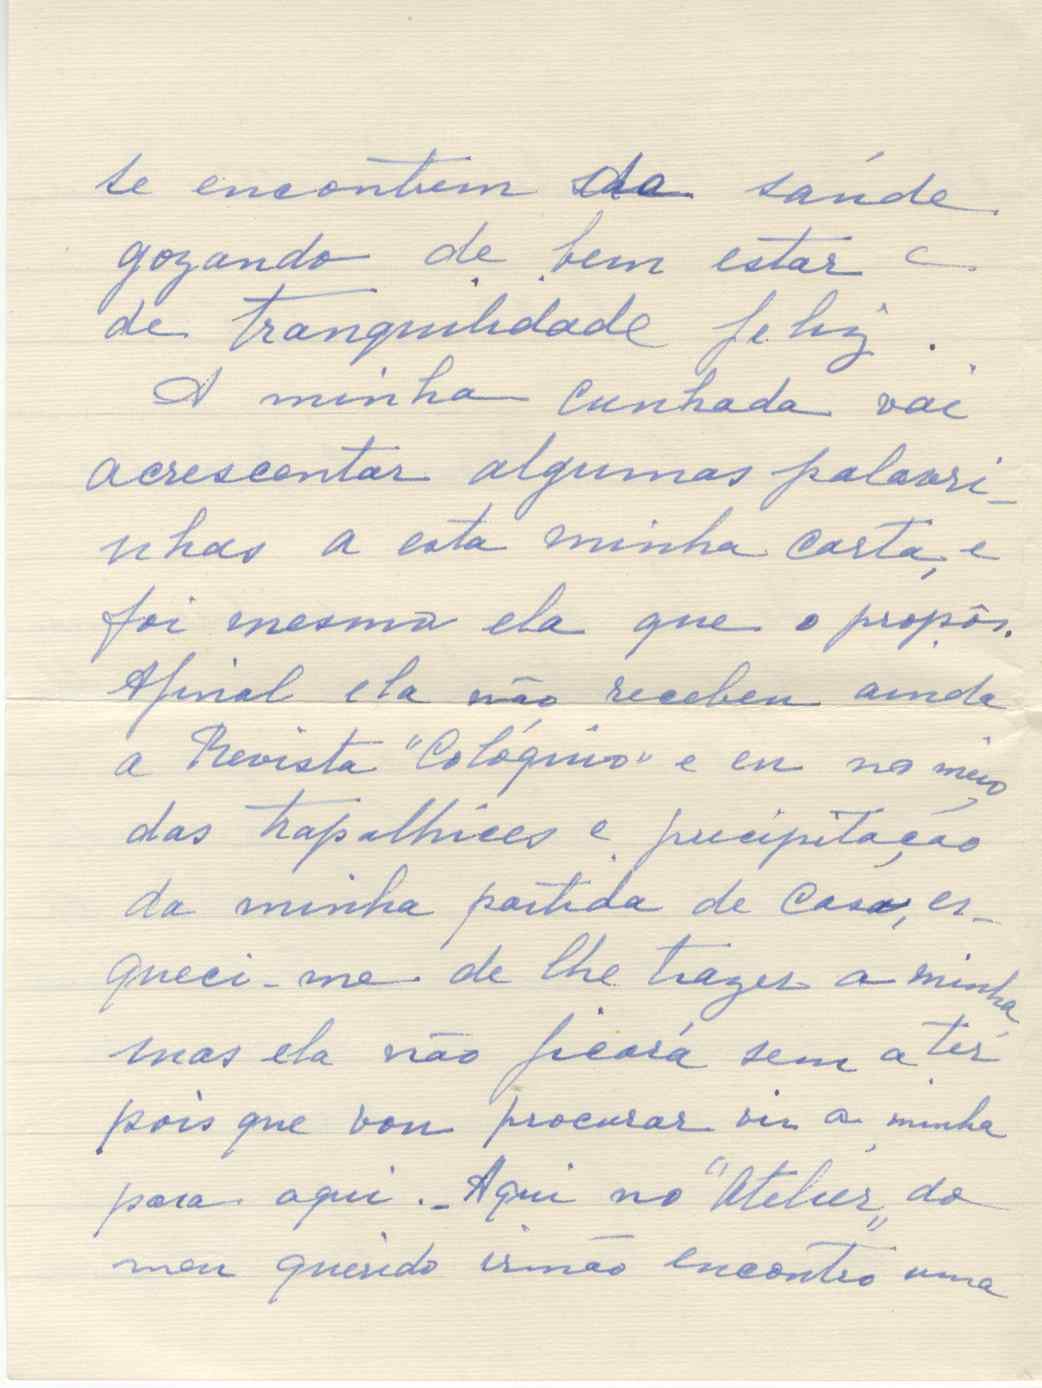 se encontrem de saúde
gozando de bem estar e
de tranquilidade feliz.
A minha cunhada vai
acrescentar algumas palavri-
nhas a esta minha carta, e
foi mesmo ela que o propôs.
Afinal ela não recebeu ainda
a Revista "Colóquio" e eu no meio
das trapalhices e precipitação
da minha partida de casa, es-
queci-me de lhe trazer a minha
mas ela não ficará sem a ter
pois que vou procurar vir a minha
para aqui. - Aqui no "Atelier" do
meu querido irmão encontro uma